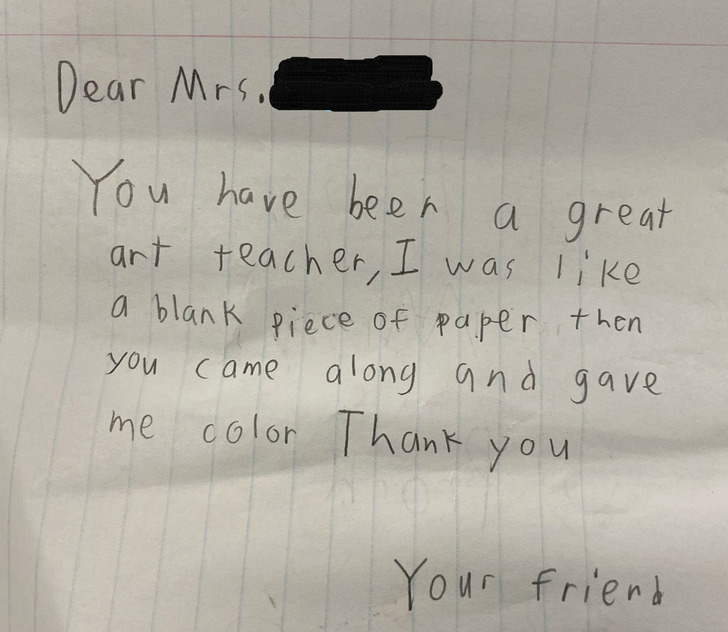 Dear Mrs.
You have been a great
art teacher, I was like
a blank piece of paper then
you came along and gave
me color Thank you
Your friend